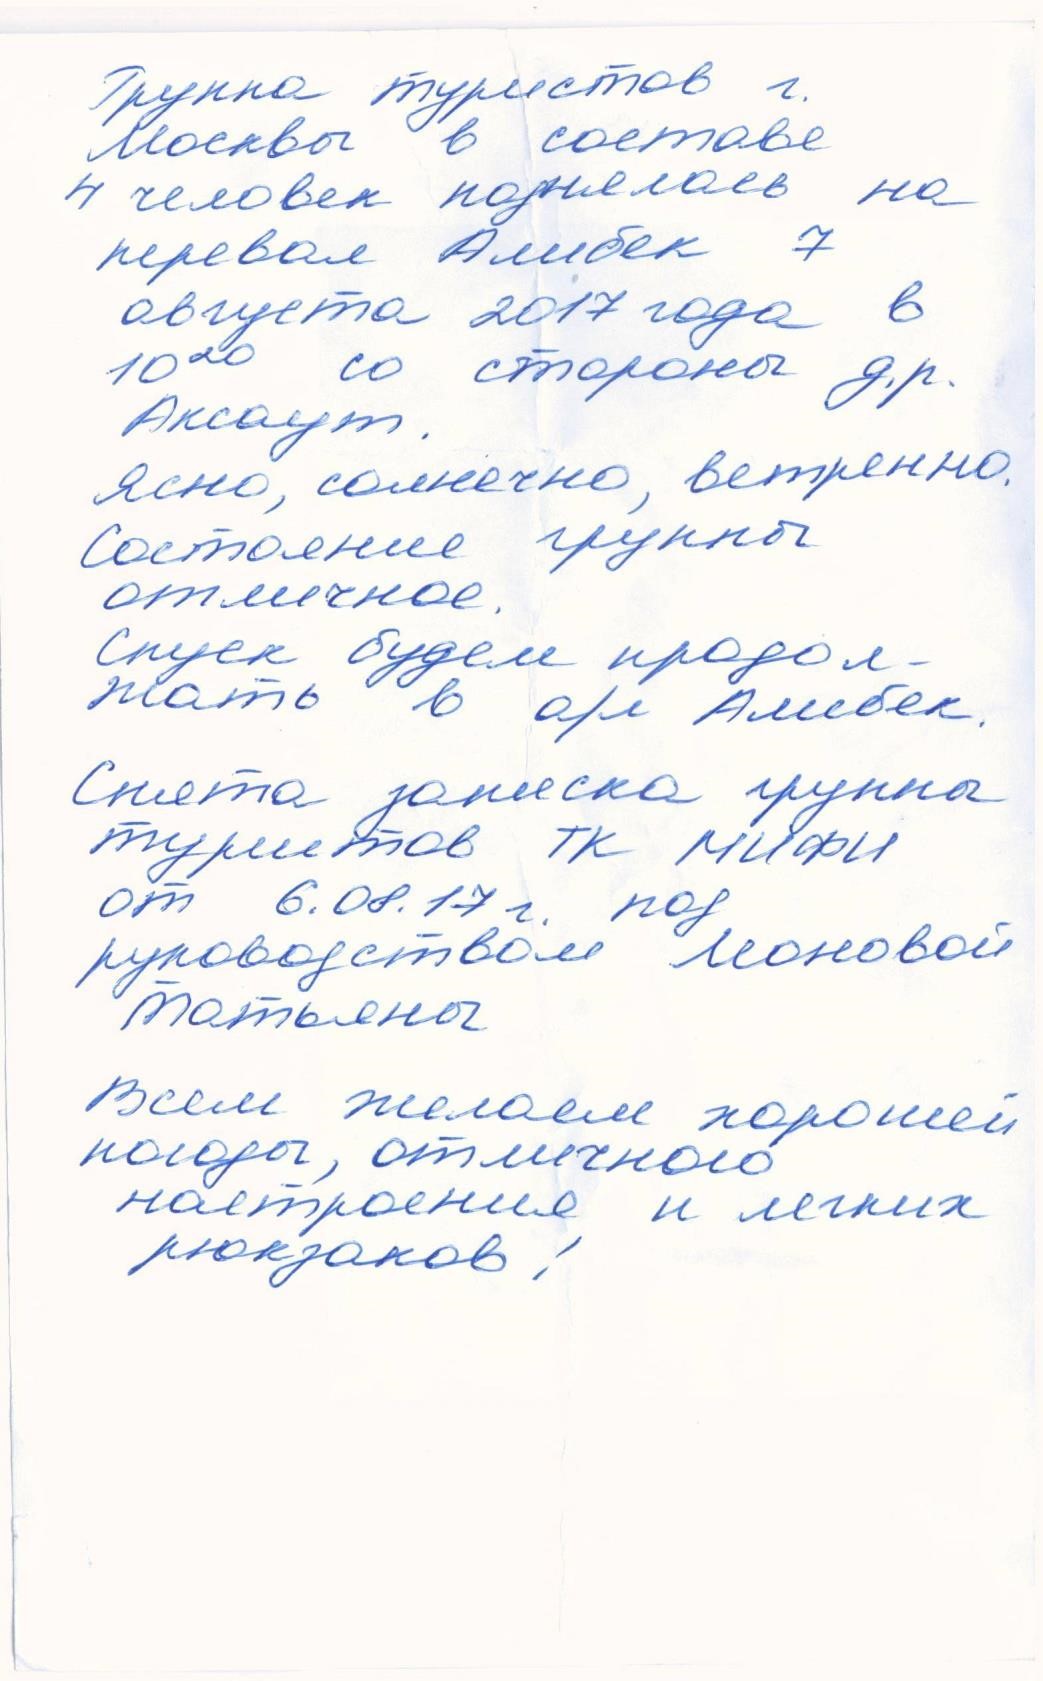 Группа туристов г.
Москвы в составе
4 человек поднялась на
перевал Алибек 7
августа 2017 года в
10²⁰ со стороны д.р.
Аксаут.
Ясно, солнечно, ветренно.
Состояние группы
отличное.
Спуск будем продол-
жать в а/л Алибек.
Снята записка группы
туристов ТК МИФИ
от 6.08.17 г. под
руководством Моновой
Татьяны
Всем желаем хорошей
погоды, отличного
настроения и легких
рюкзаков!